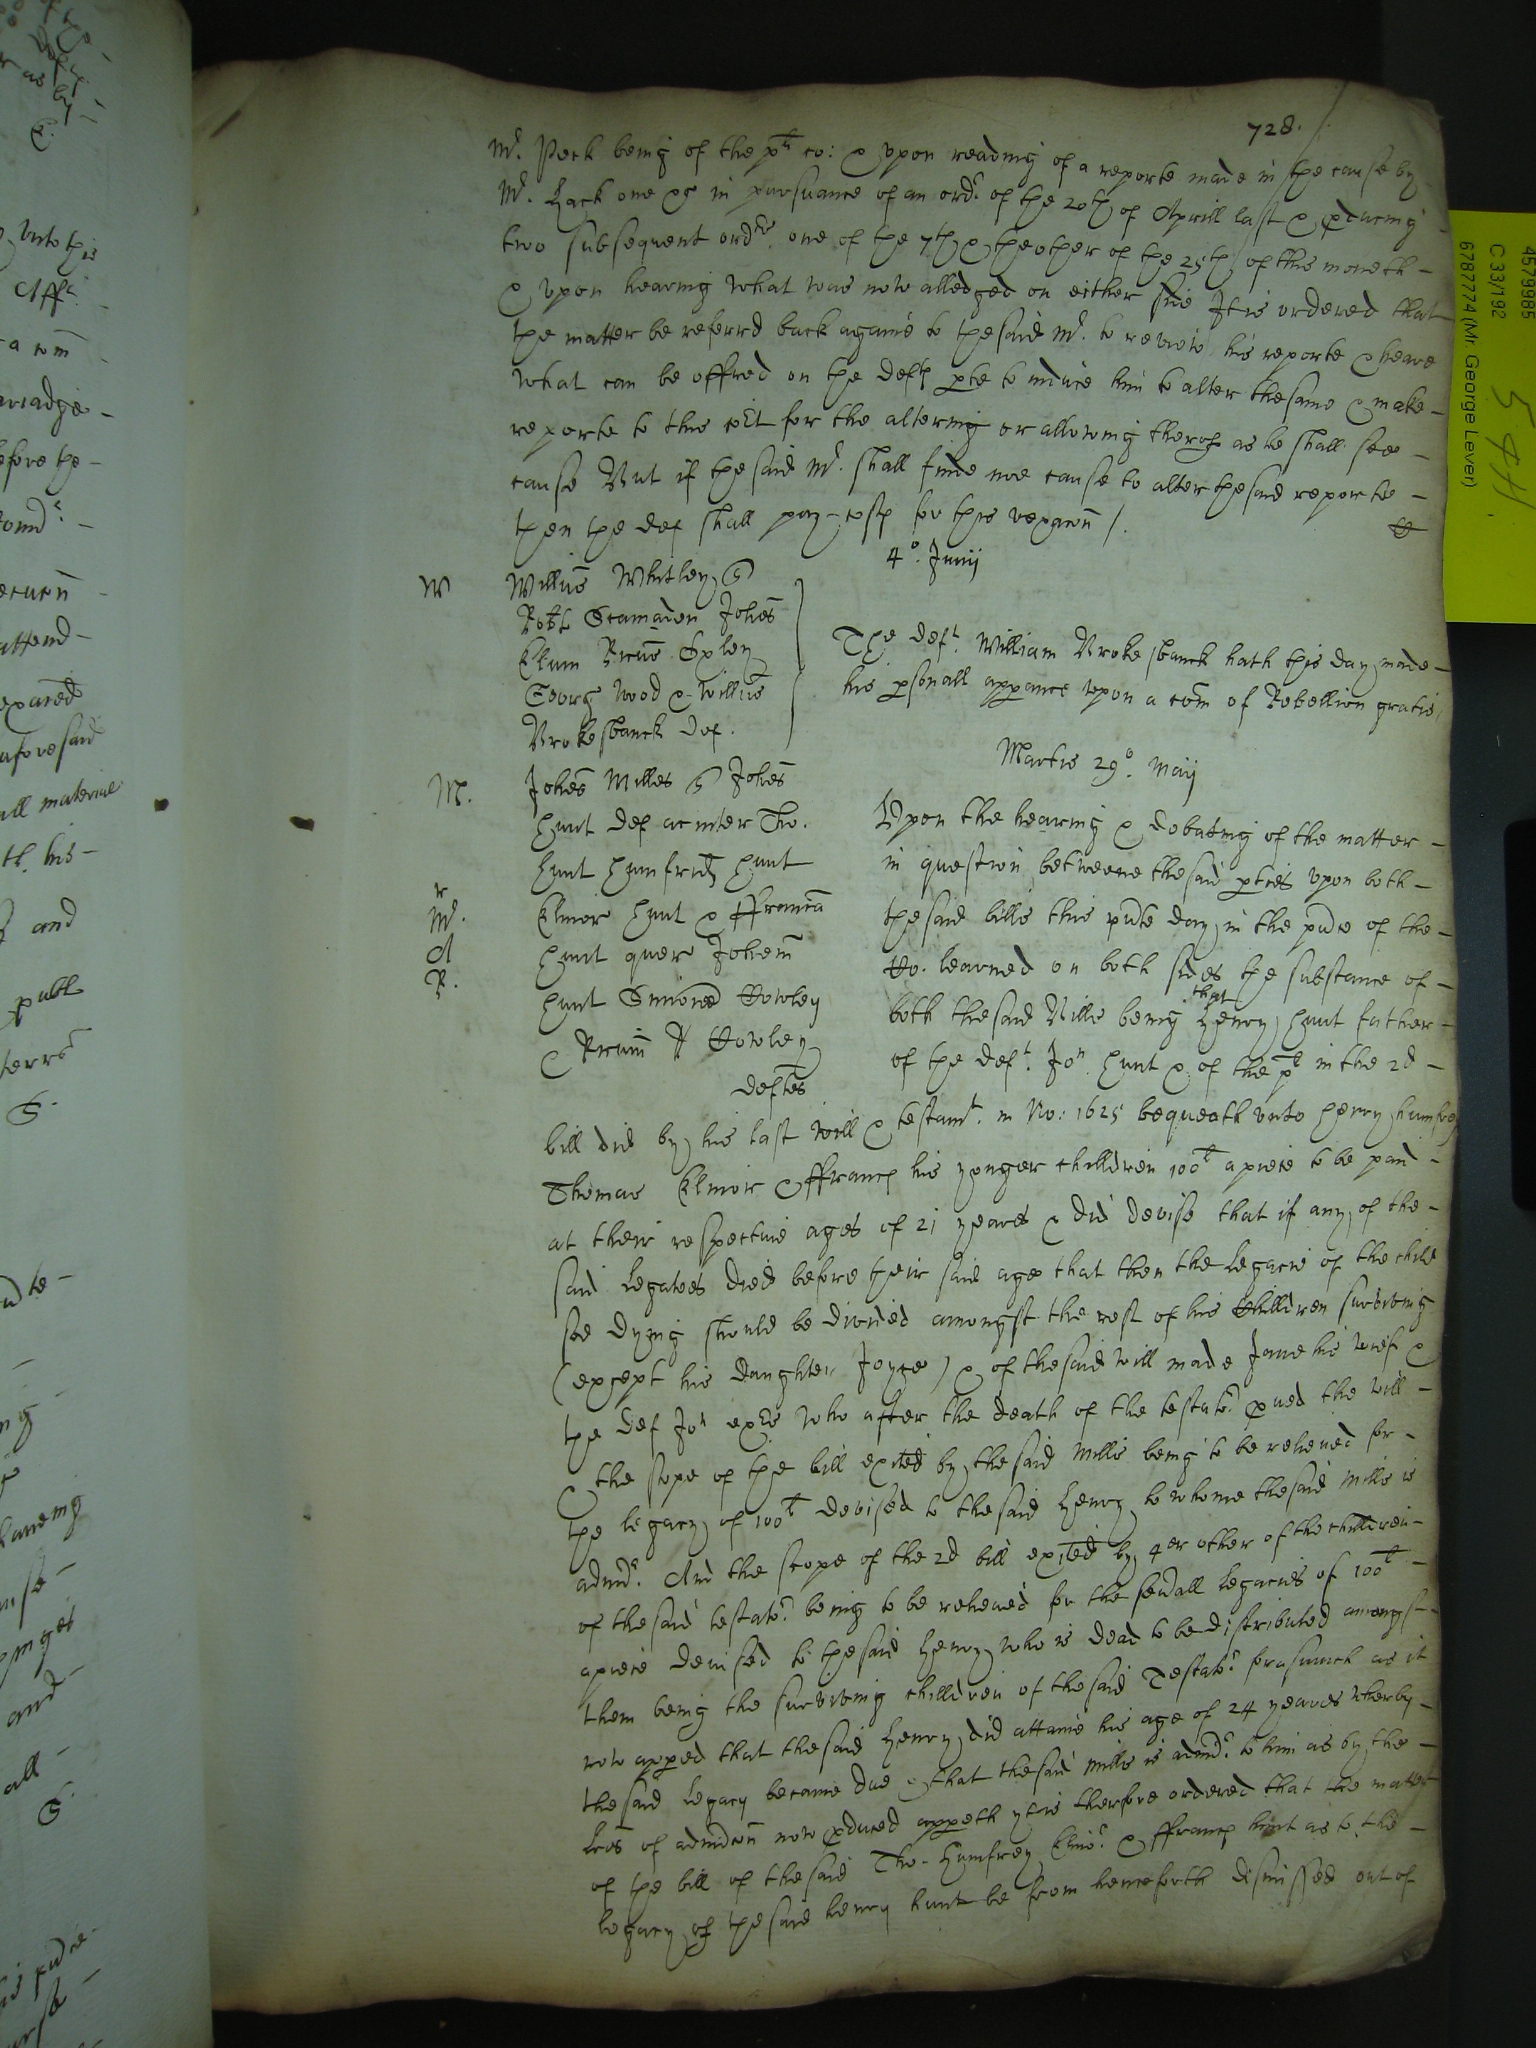 728.
Mr. Peck being of the plt co: & upon reading of a reporte made in the cause by
Mr. Hack one &c in pursuance of an ordr of the 20th of Aprill last & pducing
two subsequent ordrs one of the 7th & the other of the 25th of this moneth
& upon hearing what was now alledged on either side It is ordered that
the matter be referrd back againe to the said Mr. to review his reporte & heare
what can be offred on the defts pte to induce him to alter the same & make
reporte to this cort for the altering or allowing therof as he shall see
cause But if the said Mr. shall finde noe cause to alter the said reporte
then the def shall pay costs for this vexacon /.
4o. Junij
W Willus Whitley
Robt Scamaden Johes
Elum Ricus Exley
Georg Wood & Willus
Brokesbanck def.
The deft. William Brokesbanck hath this day made
his psonall appance upon a com of Rebellion gratis
Martis 29o. Maij
M. Johes Milles Johes
Hunt def ac inter Tho.
Hunt Humfrid Hunt
Elinor Hunt & ffranca
Hunt quer Johem
Hunt Rowley
& Rowley
deftes
r
M.
A
R.
Upon the hearing & debating of the matter
in question betweene the said pties upon both
the said bills this pnte day in the pnce of the
Co. learned on both sides the substance of
both the said Bills being that Henry Hunt father
of the deft. Jon Hunt & of the plt in the 2d
bill did by his last will & testamt. in No: 1625 bequeath unto Henry Humfrey
Thomas Elinor & ffrancs his yonger children 100l apiece to be paid
at their respective ages of 21 yeares & did devise that if any of the
said legatees died before their said age that then the legacie of the child
soe dying should be divided amongst the rest of his children surviving
(except his daughter Joyce) & of the said will made Jane his wief &
the def Jon exrs who after the death of the testator pved the will
& the scope of the bill exited by the said Mills being to be relieved for
the legacy of 100l devised to the said Henry to whome the said Mills is
admr. And the scope of the 2d bill exited by 4er other of the children
of the said testator being to be relieved for the sevall legacies of 100l
apiece devised to the said Henry who is dead to be distributed amongst
them being the surviving children of the said Testator forasmuch as it
now apped that the said Henry did attaine his age of 24 yeares wherby
the said legacy became due & that the said Mills is admr to him as by the
lres of admcon now pduced appeth yt is therfore ordered that the matter
of the bill of the said Tho. Humfrey Elinor & ffrancs Hunt as to the
legacy of the said henry hunt be from henceforth dismissed out of
4579985
C 33/192
6787774 (Mr. George Lever)